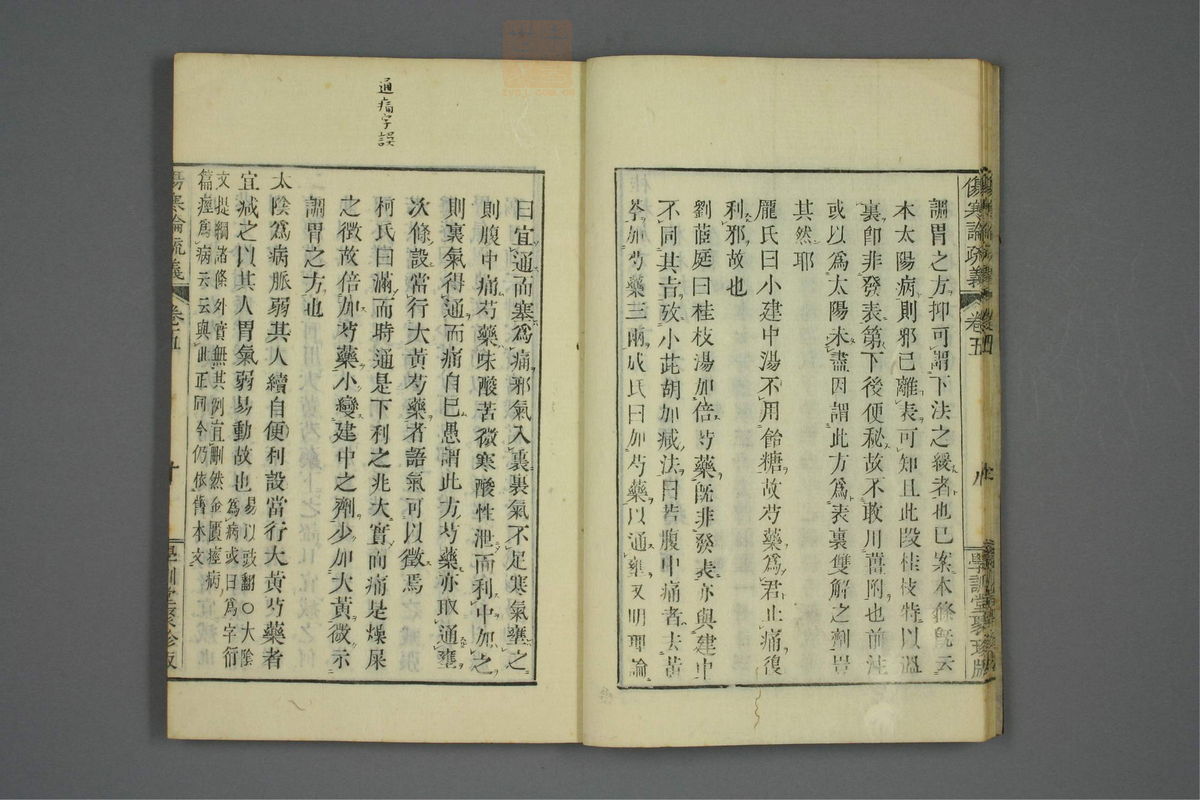 謂胃之方抑可謂下法之緩者也已案本條既云
本太陽病則邪已離表可知且此段桂枝特以溫
裏卽非發表第下後便秘故不敢用薑附也前注
或以爲太陽未盡因謂此方爲表裏雙解之劑豈
其然耶
龐氏曰小建中湯不用飴糖故芍藥爲君止痛復
利邪故也
劉茝庭曰桂枝湯加倍芍藥旣非發表亦與建中
不同其旨攷小茈胡加減法曰若腹中痛者去黃
芩加芍藥三兩成氏曰加芍藥以通壅又明理論
傷寒論疏義
卷五
學訓堂聚珍版
曰宜通而塞爲痛邪氣入裏裏氣不足寒氣壅之
則腹中痛芍藥味酸苦微寒酸性泄而利中加之
則裏氣得通而痛自已愚謂此方芍藥亦取通壅
次條設當行大黃芍藥者語氣可以徵焉
柯氏曰滿而時通是下利之兆大實而痛是燥屎
之徵故倍加芍藥小變建中之劑少加大黃微示
調胃之方也
太陰爲病脈弱其人續自便利設當行大黃芍藥者
宜減之以其人胃氣弱易動故也
易以豉翻○大陰
爲病或曰爲字衍
文提綱諸條外實無其例宜刪然金匱痙病
篇痙爲病云云與此正同今仍依舊本文
傷寒論疏義
卷五
學訓堂聚珍版
通痛字誤